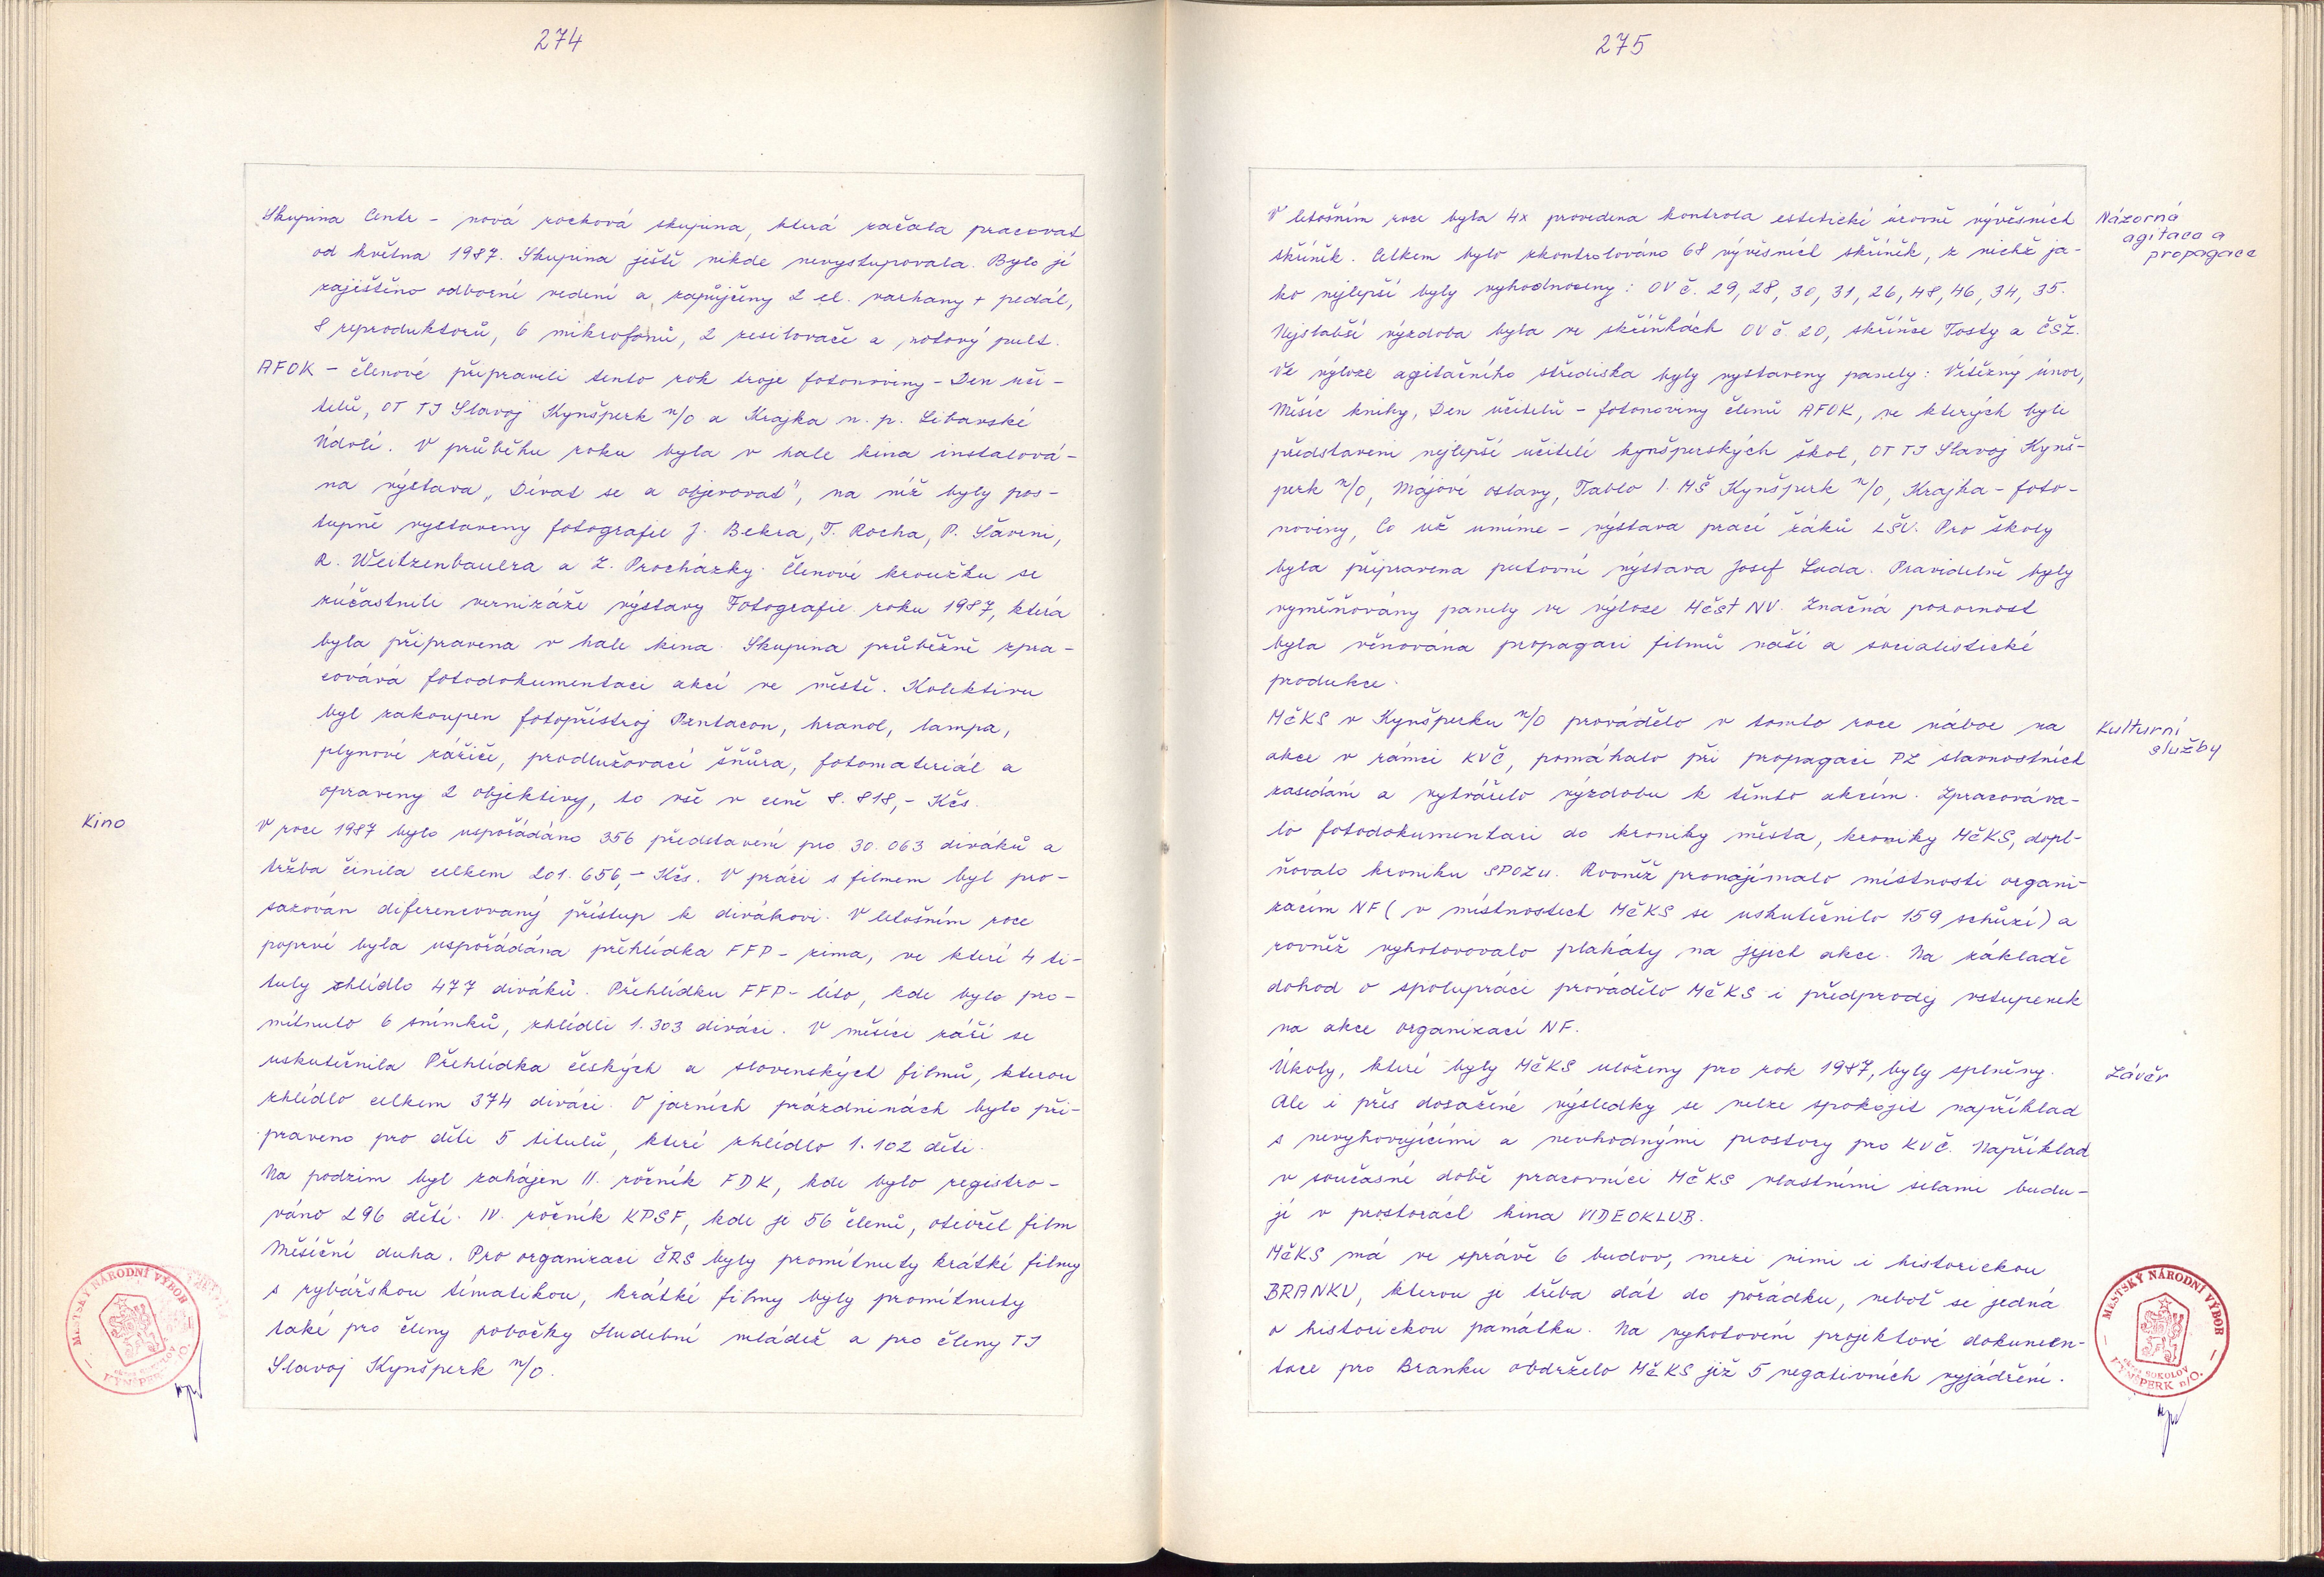 274
Skupina Centr - nová rocková skupina, která začala pracovat
od května 1987. Skupina ještě nikde nevystupovala. Bylo jí
zajištěno odborné vedení a zapůjčeny 2 el. varhany + pedál,
8 reproduktorů, 6 mikrofonů, 2 zesilovače a notový pult.
AFOK - členové připravili tento rok troje fotonoviny - Den uči-
telů, OT TJ Slavoj Kynšperk n/O a Krajka n. p. Libavské
Údolí. V průběhu roku byla v hale kina instalová-
na výstava „Dívat se a objevovat", na níž byly pos-
tupně vystaveny fotografie J. Bekra, T. Rocha, P.
R. Weitzenbauera a Z. Procházky. Členové kroužku se
zúčastnili vernizáže výstavy Fotografie roku 1987, která
byla připravena v hale kina. Skupina průběžně zpra-
covává fotodokumentaci akcí ve městě. Kolektivu
byl zakoupen fotopřístroj Pentacon, hranol, lampa,
plynové zářiče, prodlužovací šňůra, fotomateriál a
opraveny 2 objektivy, to vše v ceně 8.818,- Kčs.
Kino
V roce 1987 bylo uspořádáno 356 představení pro 30.063 diváků a
tržba činila celkem 201.656,- Kčs. V práci s filmem byl pro-
sazován diferencovaný přístup k divákovi. V letošním roce
poprvé byla uspořádána přehlídka FFP - zima, ve které 4 ti-
tuly zhlédlo 477 diváků. Přehlídku FFP - léto, kde bylo pro-
mítnuto 6 snímků, zhlédli 1.303 diváci. V měsíci září se
uskutečnila Přehlídka českých a slovenských filmů, kterou
zhlédlo celkem 374 diváci. O jarních prázdninách bylo při-
praveno pro děti 5 titulů, které zhlédlo 1.102 dětí.
Na podzim byl zahájen II. ročník FDK, kde bylo registro-
váno 296 dětí. IV. ročník KPSF, kde je 56 členů, otevřel film
Měsíční duha. Pro organizaci ČRS byly promítnuty krátké filmy
s rybářskou tématikou, krátké filmy byly promítnuty
také pro členy pobočky Hudební mládež a pro členy TJ
Slavoj Kynšperk n/O.
MĚSTSKÝ NÁRODNÍ VÝBOR
OKRES SOKOLOV
KYNŠPERK n/O.
275
V letošním roce byla 4x provedena kontrola estetické úrovně vývěsních
skříněk. Celkem bylo zkontrolováno 68 vývěsních skříněk, z nichž ja-
ko nejlepší byly vyhodnoceny: OV č. 29, 28, 30, 31, 26, 48, 46, 34, 35.
Nejslabší výzdoba byla ve skříňkách OV č. 20, skříňce Tosty a ČSŽ.
Ve výloze agitačního střediska byly vystaveny panely: Vítězný únor,
Měsíc knihy, Den učitelů - fotonoviny členů AFOK, ve kterých byli
představeni nejlepší učitelé kynšperských škol, OT TJ Slavoj Kynš-
perk n/O, Májové oslavy, Tablo 1. MŠ Kynšperk n/O, Krajka - foto-
noviny, Co už umíme - výstava prací žáků LŠU. Pro školy
byla připravena putovní výstava Josef Lada. Pravidelně byly
vyměňovány panely ve výloze MěstNV. Značná pozornost
byla věnována propagaci filmů naší a socialistické
produkce.
Názorná
agitace a
propagace
MěKS v Kynšperku n/O provádělo v tomto roce nábor na
akce v rámci KVČ, pomáhalo při propagaci PZ slavnostních
zasedání a vytvářelo výzdobu k těmto akcím. Zpracováva-
lo fotodokumentaci do kroniky města, kroniky MěKS, dopl-
ňovalo kroniku SPOZu. Rovněž pronajímalo místnosti organi-
zacím NF (v místnostech MěKS se uskutečnilo 159 schůzí) a
rovněž vyhotovovalo plakáty na jejich akce. Na základě
dohod o spolupráci provádělo MěKS i předprodej vstupenek
na akce organizací NF.
Kulturní
služby
Úkoly, které byly MěKS uloženy pro rok 1987, byly splněny.
Ale i přes dosažené výsledky se nelze spokojit například
s nevyhovujícími a nevhodnými prostory pro KVČ. Například
v současné době pracovníci MěKS vlastními silami budu-
jí v prostorách kina VIDEOKLUB.
MěKS má ve správě 6 budov, mezi nimi i historickou
BRANKU, kterou je třeba dát do pořádku, neboť se jedná
o historickou památku. Na vyhotovení projektové dokumen-
tace pro Branku obdrželo MěKS již 5 negativních vyjádření.
Závěr
MĚSTSKÝ NÁRODNÍ VÝBOR
OKRES SOKOLOV
KYNŠPERK n/O.